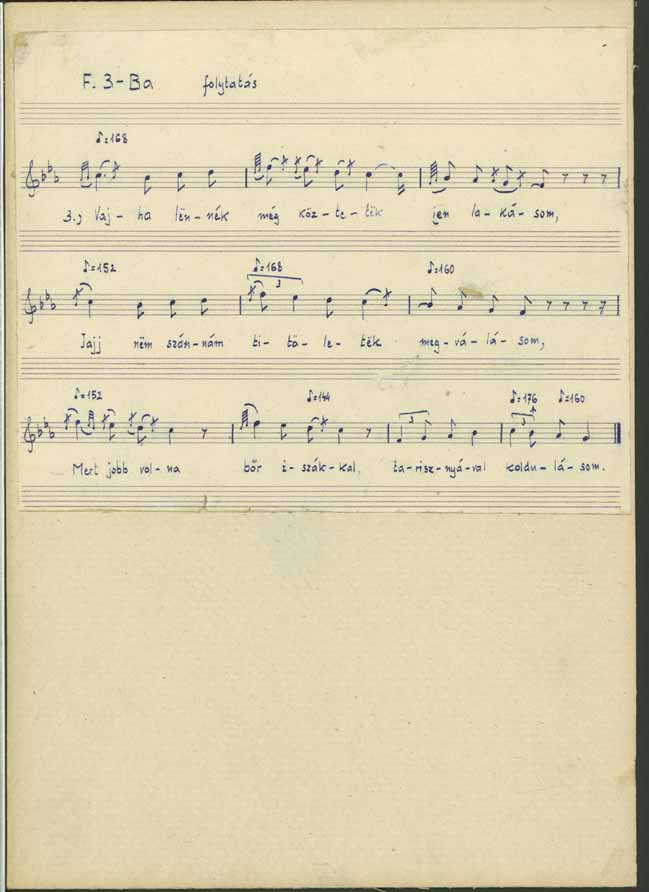 F. 3-Ba folytatás
♪=168
3., Vaj-ha lën-nék még köz-te-tëk jen la-ká-som,
♪=152 ♪=168 ♪=160
3
Jajj nëm szán-nám ti-tö-le-tëk meg-vá-lá-som,
♪=152 ♪=144 ♪=176 ♪=160
3 3
Mert jobb vol-na bőr i-szák-kal, ta-risz-nyá-val koldu-lá-som.